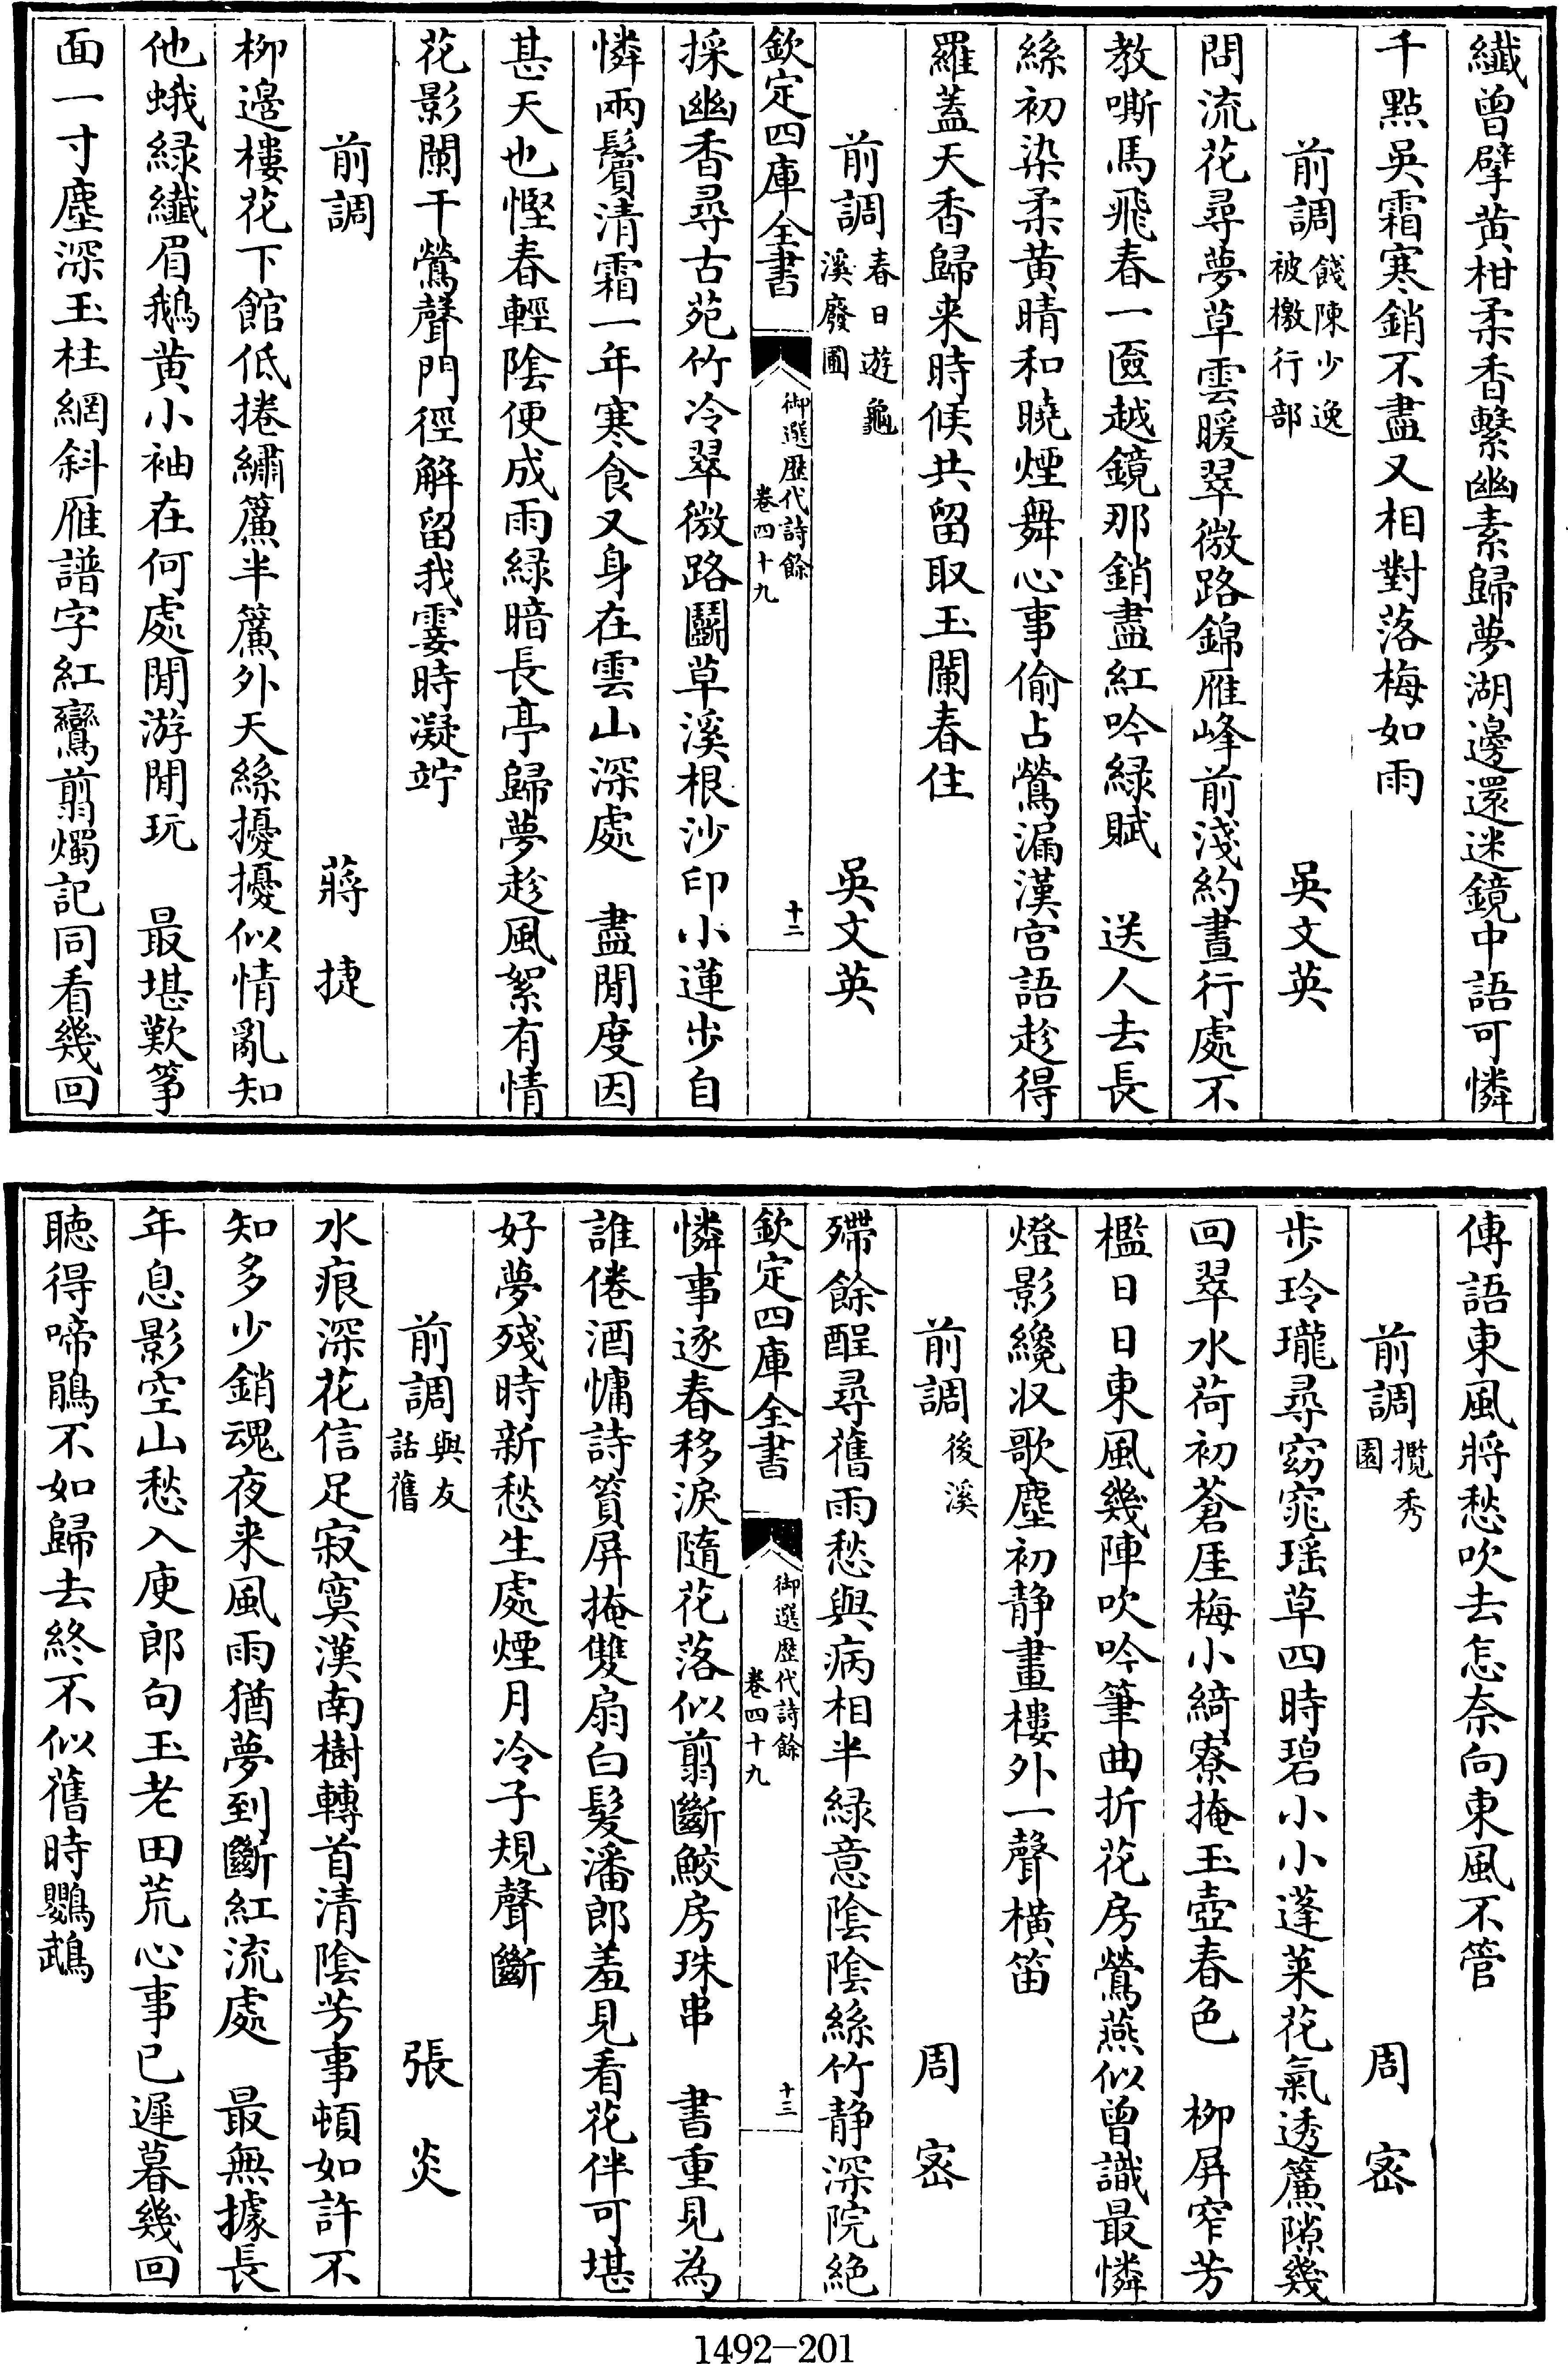 纖曾擘黄柑柔香繫幽素歸夢湖邊還迷鏡中語可憐
千點吳霜寒銷不盡又相對落梅如雨
前調 餞陳少逸被檄行部 吳文英
問流花尋夢草雲暖翠微路錦雁峰前淺約晝行處不
教嘶馬飛春一匳越鏡那銷盡紅吟緑賦 送人去長
絲初染柔黄晴和曉煙舞心事偷占鶯漏漢宫語趁得
羅蓋天香歸来時候共留取玉闌春住
前調 春日遊龜溪廢圃 吳文英
欽定四庫全書 御選歷代詩餘 卷四十九 十二
採幽香尋古苑竹冷翠微路鬭草溪根沙印小蓮步自
憐兩鬢清霜一年寒食又身在雲山深處 盡閒度因
甚天也慳春輕陰便成雨緑暗長亭歸夢趁風絮有情
花影闌干鶯聲門徑解留我霎時凝竚
前調 蔣捷
柳邊樓花下館低捲繡簾半簾外天絲擾擾似情亂知
他蛾緑纖眉鵝黄小袖在何處閒游閒玩 最堪歎筝
面一寸塵深玉柱網斜雁譜字紅鸞翦燭記同看幾回
傳語東風將愁吹去怎奈向東風不管
前調 攬秀園 周密
步玲瓏尋窈窕瑶草四時碧小小蓬莱花氣透簾隙幾
回翠水荷初蒼厓梅小綺寮掩玉壺春色 柳屏窄芳
檻日日東風幾陣吹吟筆曲折花房鶯燕似曾識最憐
燈影纔収歌塵初静畫樓外一聲橫笛
前調 後溪 周密
殢餘酲尋舊雨愁與病相半緑意陰陰絲竹静深院絶
欽定四庫全書 御選歷代詩餘 卷四十九 十三
憐事逐春移淚隨花落似翦斷鮫房珠串 書重見為
誰倦酒慵詩篔屏掩雙扇白髮潘郎羞見看花伴可堪
好夢殘時新愁生處煙月冷子規聲斷
前調 與友話舊 張炎
水痕深花信足寂寞漢南樹轉首清陰芳事頓如許不
知多少銷魂夜来風雨猶夢到斷紅流處 最無據長
年息影空山愁入庾郎句玉老田荒心事已遲暮幾回
聽得啼鵑不如歸去終不似舊時鸚鵡
1492-201